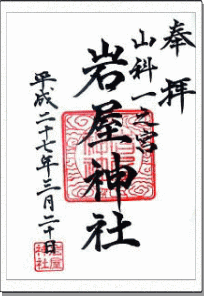 奉拝
山科一之宮
岩屋神社
平成二十七年三月二十日
岩屋
神社